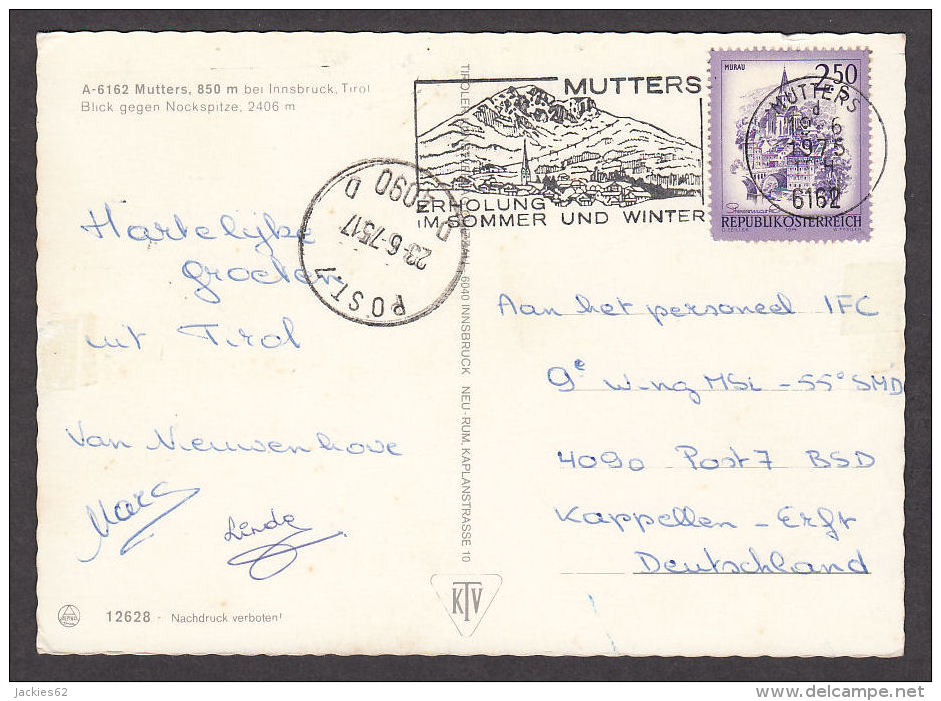 A-6162 Mutters, 850 m bei Innsbruck, Tirol
Blick gegen Nockspitze, 2406 m
Hartelijke
groeten
uit Tirol
Van Nieuwenhove
Marc
Linda
12628 - Nachdruck verboten!
6040 INNSBRUCK NEU-RUM, KAPLANSTRASSE 10
KTV
MUTTERS
ERHOLUNG
IM SOMMER UND WINTER
MURAU
2.50
REPUBLIK ÖSTERREICH
MUTTERS
1975
6162
4090
23-6-75 17
POST 7
Aan het personeel IFC
9e Wing MSL - 55° SMD
4090 Post 7 BSD
Kappellen - Erft
Deutschland
Jackies62
www.delcampe.net